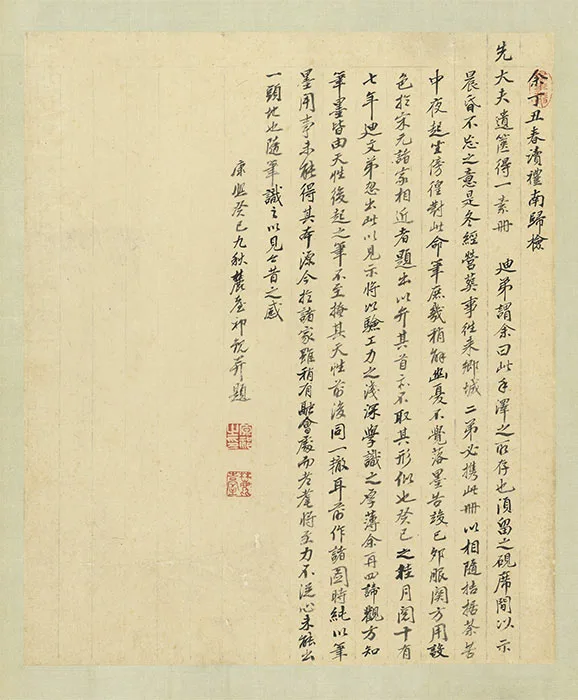 余丁丑春讀禮南歸檢
先大夫遺篋得一素冊 迪弟謂余曰此手澤之所存也須留之硯席間以示
晨昏不忘之意是冬經營葬事往来鄉城二弟必携此冊以相隨拮据荼苦
中夜起坐傍徨對此命筆庶幾稍解幽憂不覺落墨苦澁己卯服闋方用設
色於宋元諸家相近者題出以弁其首亦不取其形似也癸巳之桂月閱十有
七年迪文弟忽出此以見示將以驗工力之淺深學識之厚薄余再四諦觀方知
筆墨皆由天性後起之筆不至掩其天性前後同一轍耳前作諸圖時純以筆
墨用事未能得其本源今於諸家雖稍有融會處而老耄將至力不從心未能出
一頭地也隨筆識之以見今昔之感
康熙癸巳九秋麓臺祁并題